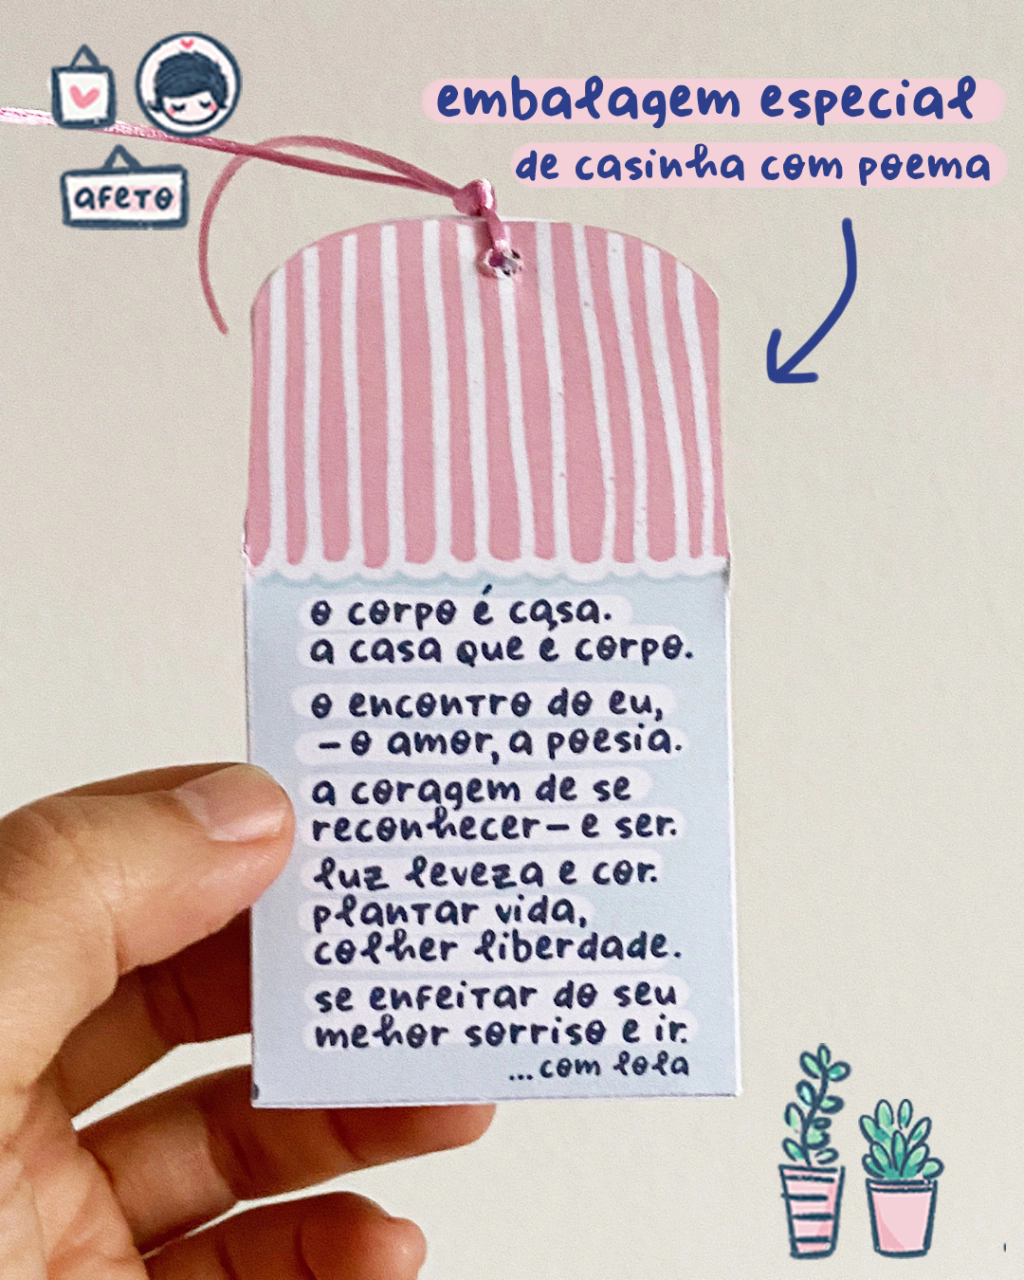 afeto
embalagem especial
de casinha com poema
o corpo é casa.
a casa que é corpo.
o encontro do eu,
– o amor, a poesia.
a coragem de se
reconhecer – e ser.
luz leveza e cor.
plantar vida,
colher liberdade.
se enfeitar do seu
mehor sorriso e ir.
...com lola